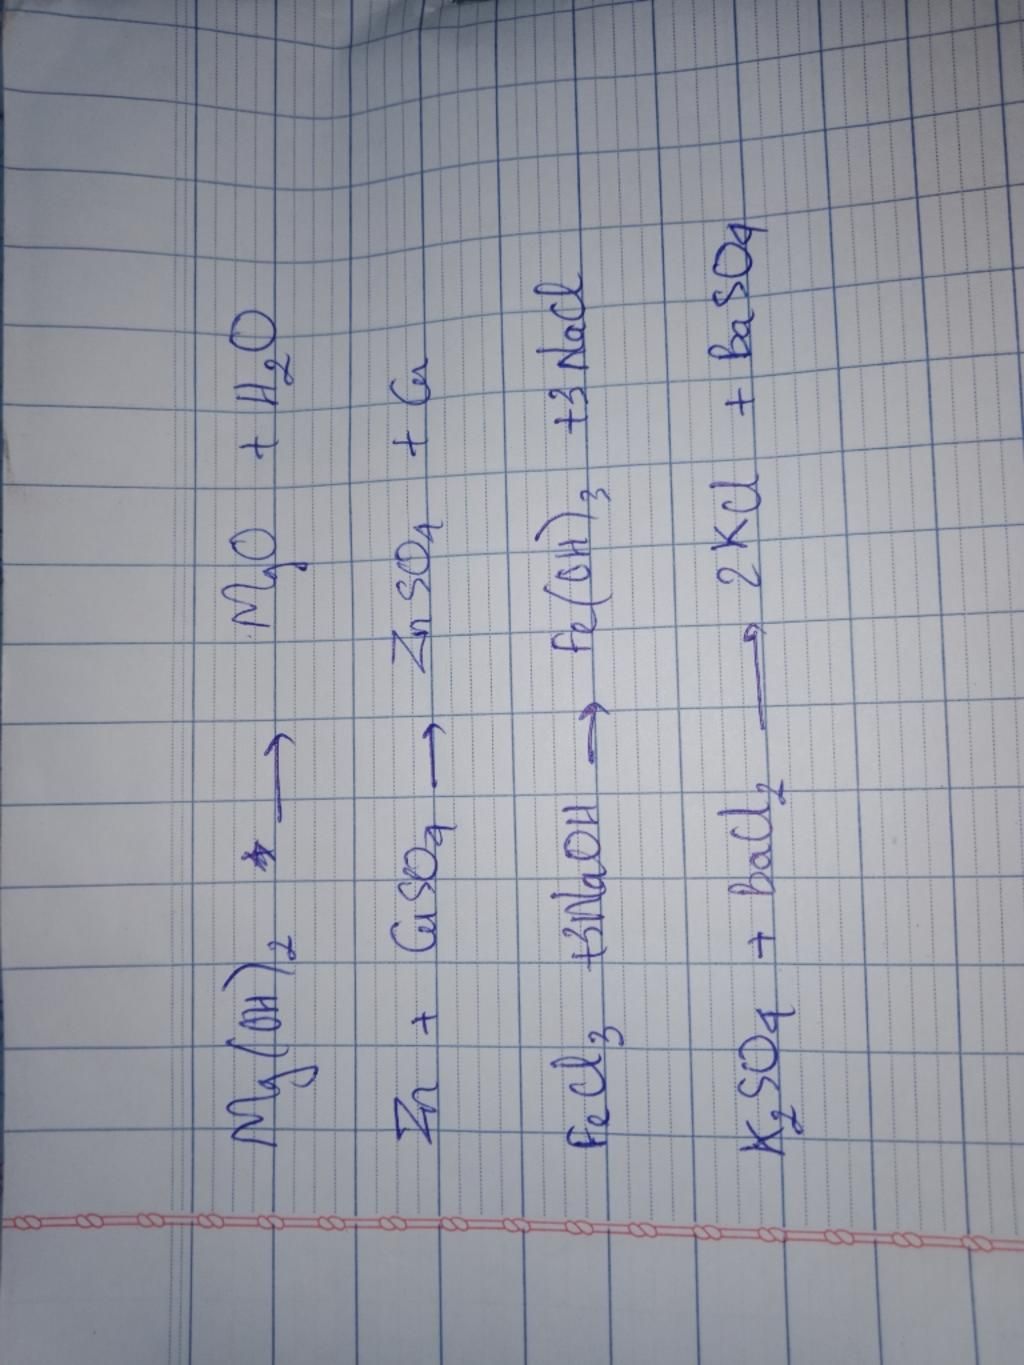 Mg(OH)₂ → MgO + H₂O
Zn + CuSO₄ → ZnSO₄ + Cu
FeCl₃ +3NaOH → Fe(OH)₃ +3NaCl
K₂SO₄ + BaCl₂ → 2KCl + BaSO₄